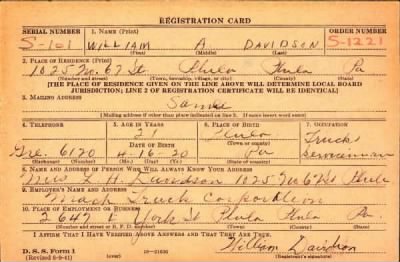 REGISTRATION CARD
SERIAL NUMBER 1. NAME (Print) ORDER NUMBER
S-101 WILLIAM A DAVIDSON S-1221
(First) (Middle) (Last)
2. PLACE OF RESIDENCE (Print)
1025 No. 67 St Phila Phila Pa
(Number and street) (Town, township, village, or city) (County) (State)
[THE PLACE OF RESIDENCE GIVEN ON THE LINE ABOVE WILL DETERMINE LOCAL BOARD
JURISDICTION; LINE 2 OF REGISTRATION CERTIFICATE WILL BE IDENTICAL]
3. MAILING ADDRESS
Same
[Mailing address if other than place indicated on line 2. If same insert word same]
4. TELEPHONE 5. AGE IN YEARS 6. PLACE OF BIRTH 7. OCCUPATION
21 Phila Truck
DATE OF BIRTH (Town or county)
Gre. 6120 4-16-20 Pa serviceman
(Exchange) (Number) (Mo.) (Day) (Yr.) (State or country)
8. NAME AND ADDRESS OF PERSON WHO WILL ALWAYS KNOW YOUR ADDRESS
Davidson 1025 No 67 St Phila
9. EMPLOYER'S NAME AND ADDRESS
Mack Truck Corporation
10. PLACE OF EMPLOYMENT OR BUSINESS
2647 E York St Phila Phila Pa.
(Number and street or R. F. D. number) (Town) (County) (State)
I AFFIRM THAT I HAVE VERIFIED ABOVE ANSWERS AND THAT THEY ARE TRUE.
D. S. S. Form 1
(Revised 6-9-41) 16—21630 William Davidson
(Registrant's signature)